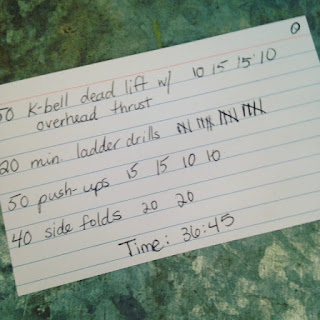 50 K-bell dead lift w/ 10 15 15 10
overhead thrust
20 min. ladder drills
50 push-ups 15 15 10 10
40 side folds 20 20
Time: 36:45